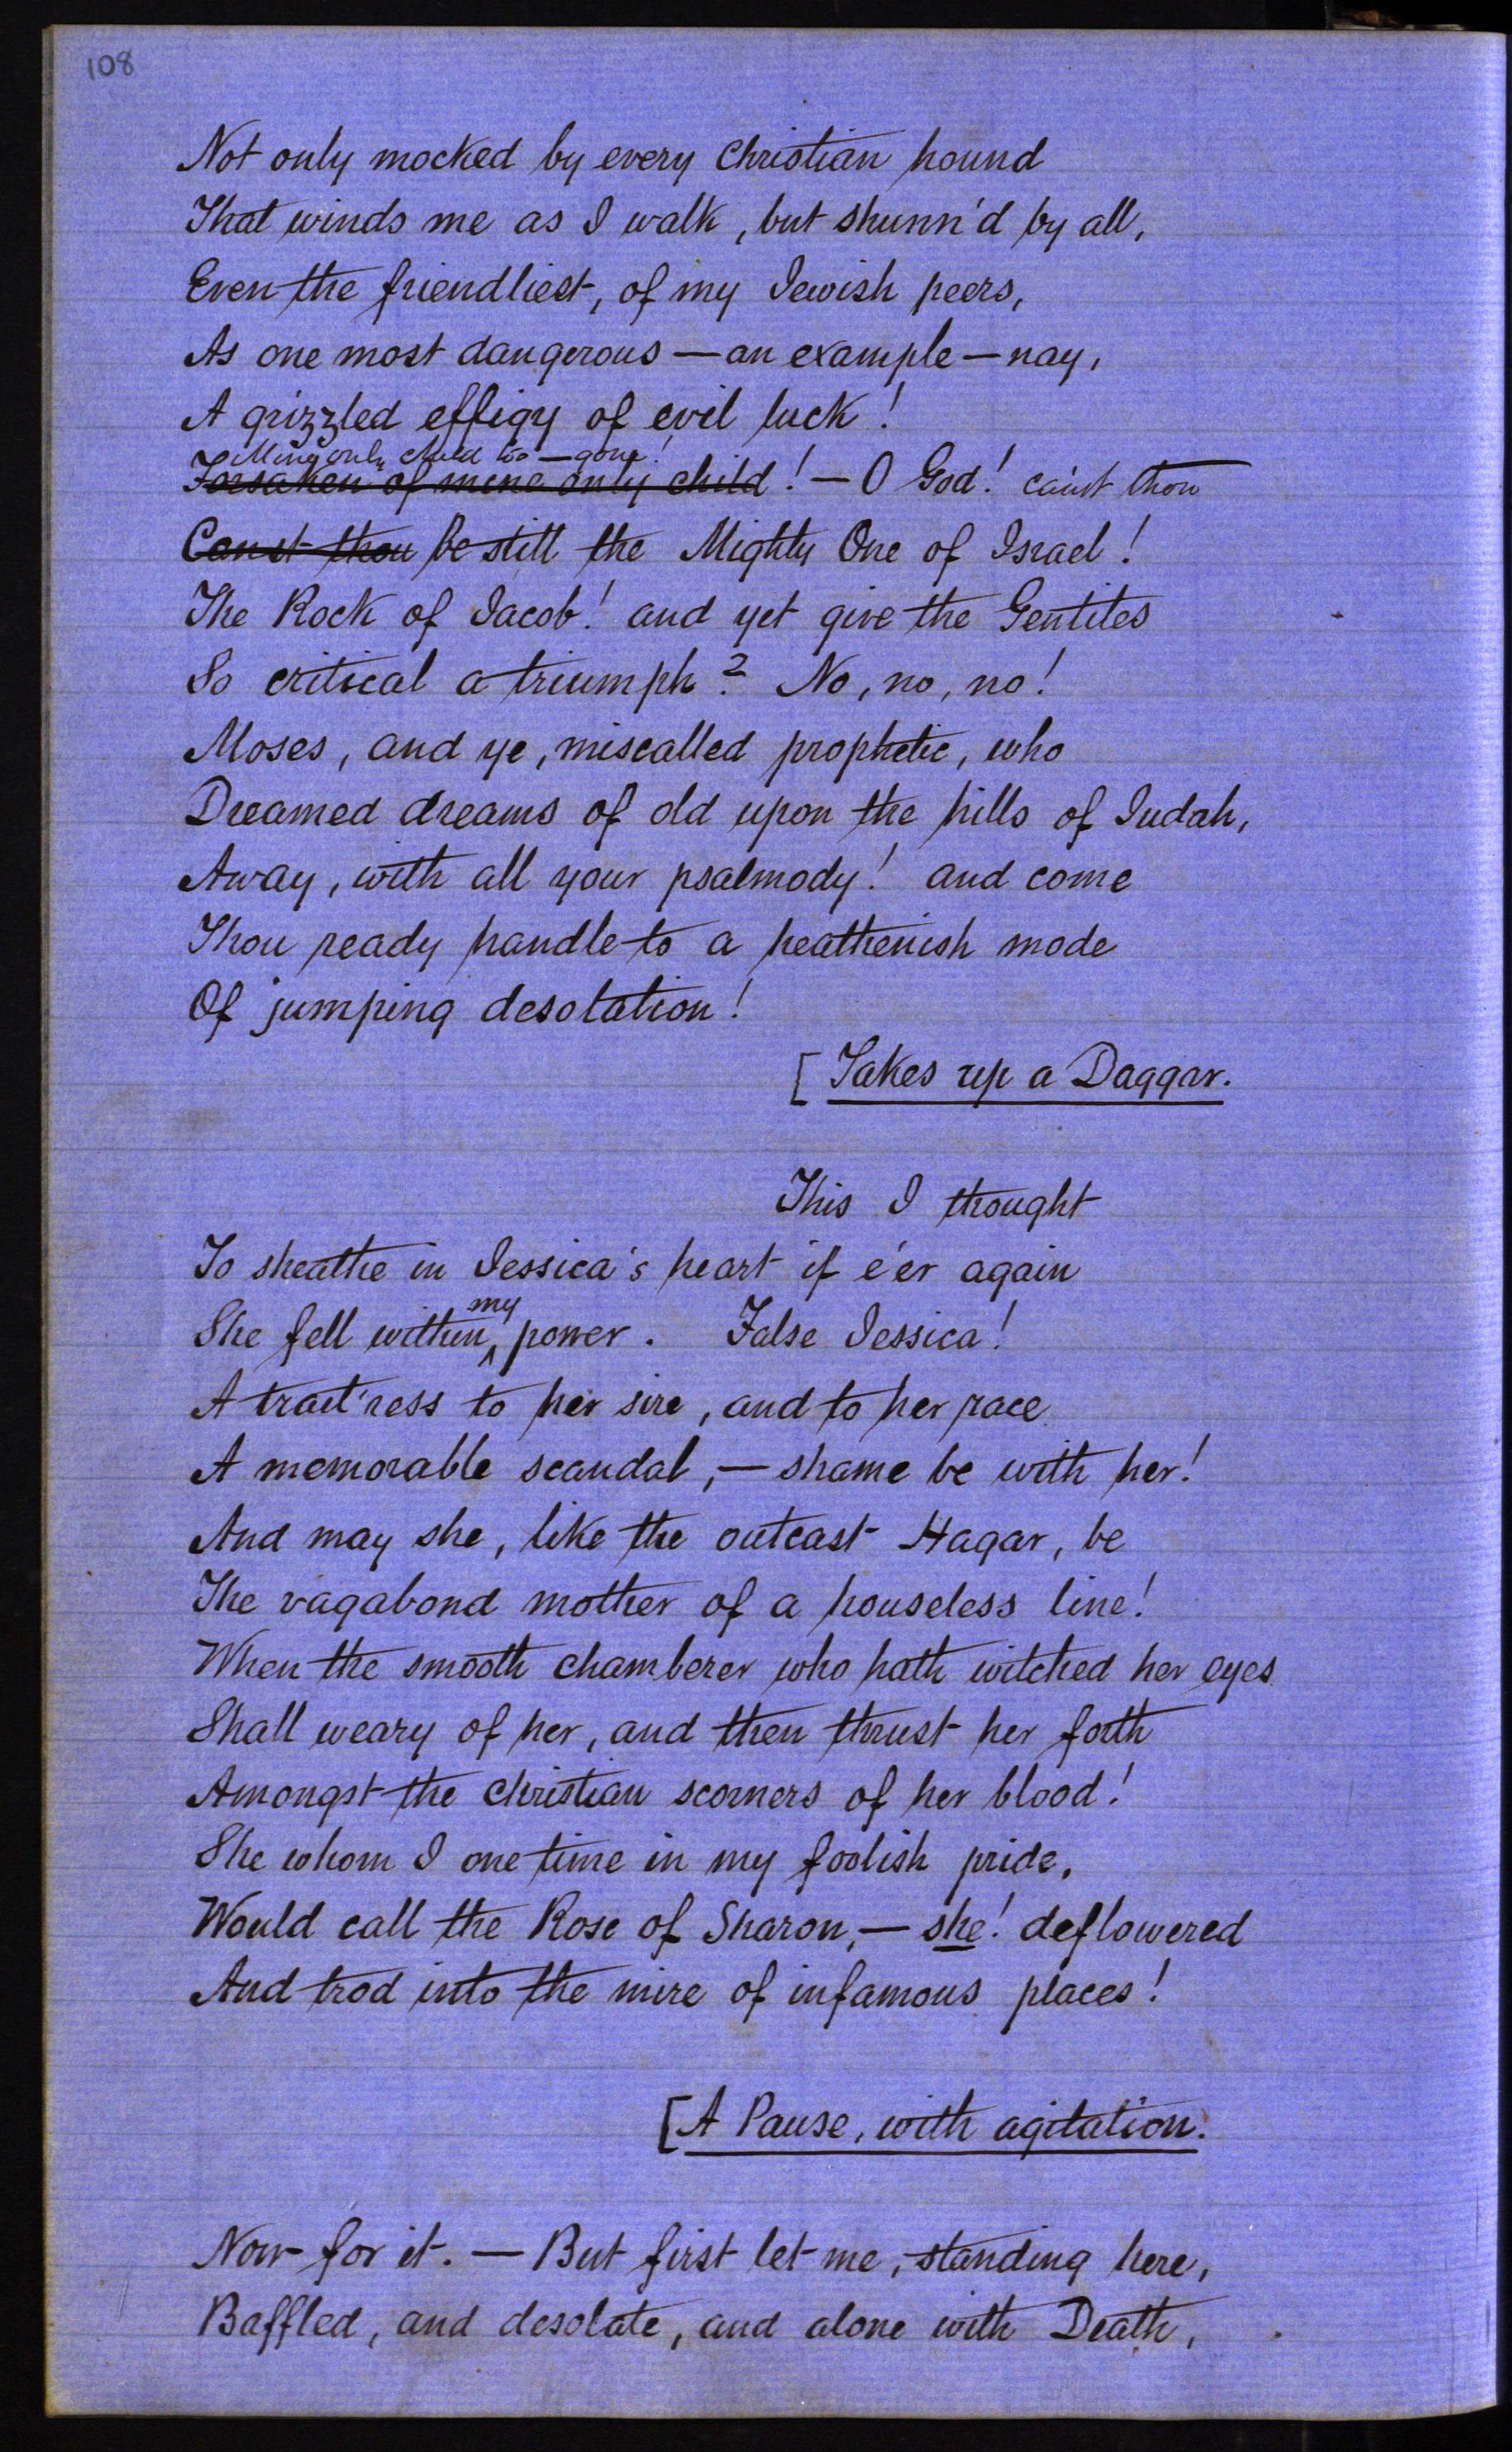 108
Not only mocked by every Christian hound
That winds me as I walk, but shunn'd by all,
Even the friendliest, of my Jewish peers,
As one most dangerous — an example — nay,
A grizzled effigy of evil luck!
Mine only child too — gone!
Forsaken of mine only child! — O God! can'st thou
Canst thou be still the Mighty One of Israel!
The Rock of Jacob! and yet give the Gentiles
So critical a triumph? No, no, no!
Moses, and ye, miscalled prophetic, who
Dreamed dreams of old upon the hills of Judah,
Away, with all your psalmody! and come
Thou ready handle to a heathenish mode
Of jumping desolation!
[Takes up a Daggar.
This I thought
To sheathe in Jessica's heart if e'er again
my
She fell within ^ power. False Jessica!
A trait'ress to her sire, and to her race
A memorable scandal, — shame be with her!
And may she, like the outcast Hagar, be
The vagabond mother of a houseless line!
When the smooth chamberer who hath witched her eyes
Shall weary of her, and then thrust her forth
Amongst the Christian scorners of her blood!
She whom I one time in my foolish pride,
Would call the Rose of Sharon, — she! deflowered
And trod into the mire of infamous places!
[A Pause, with agitation.
Now for it. — But first let me, standing here,
Baffled, and desolate, and alone with Death,